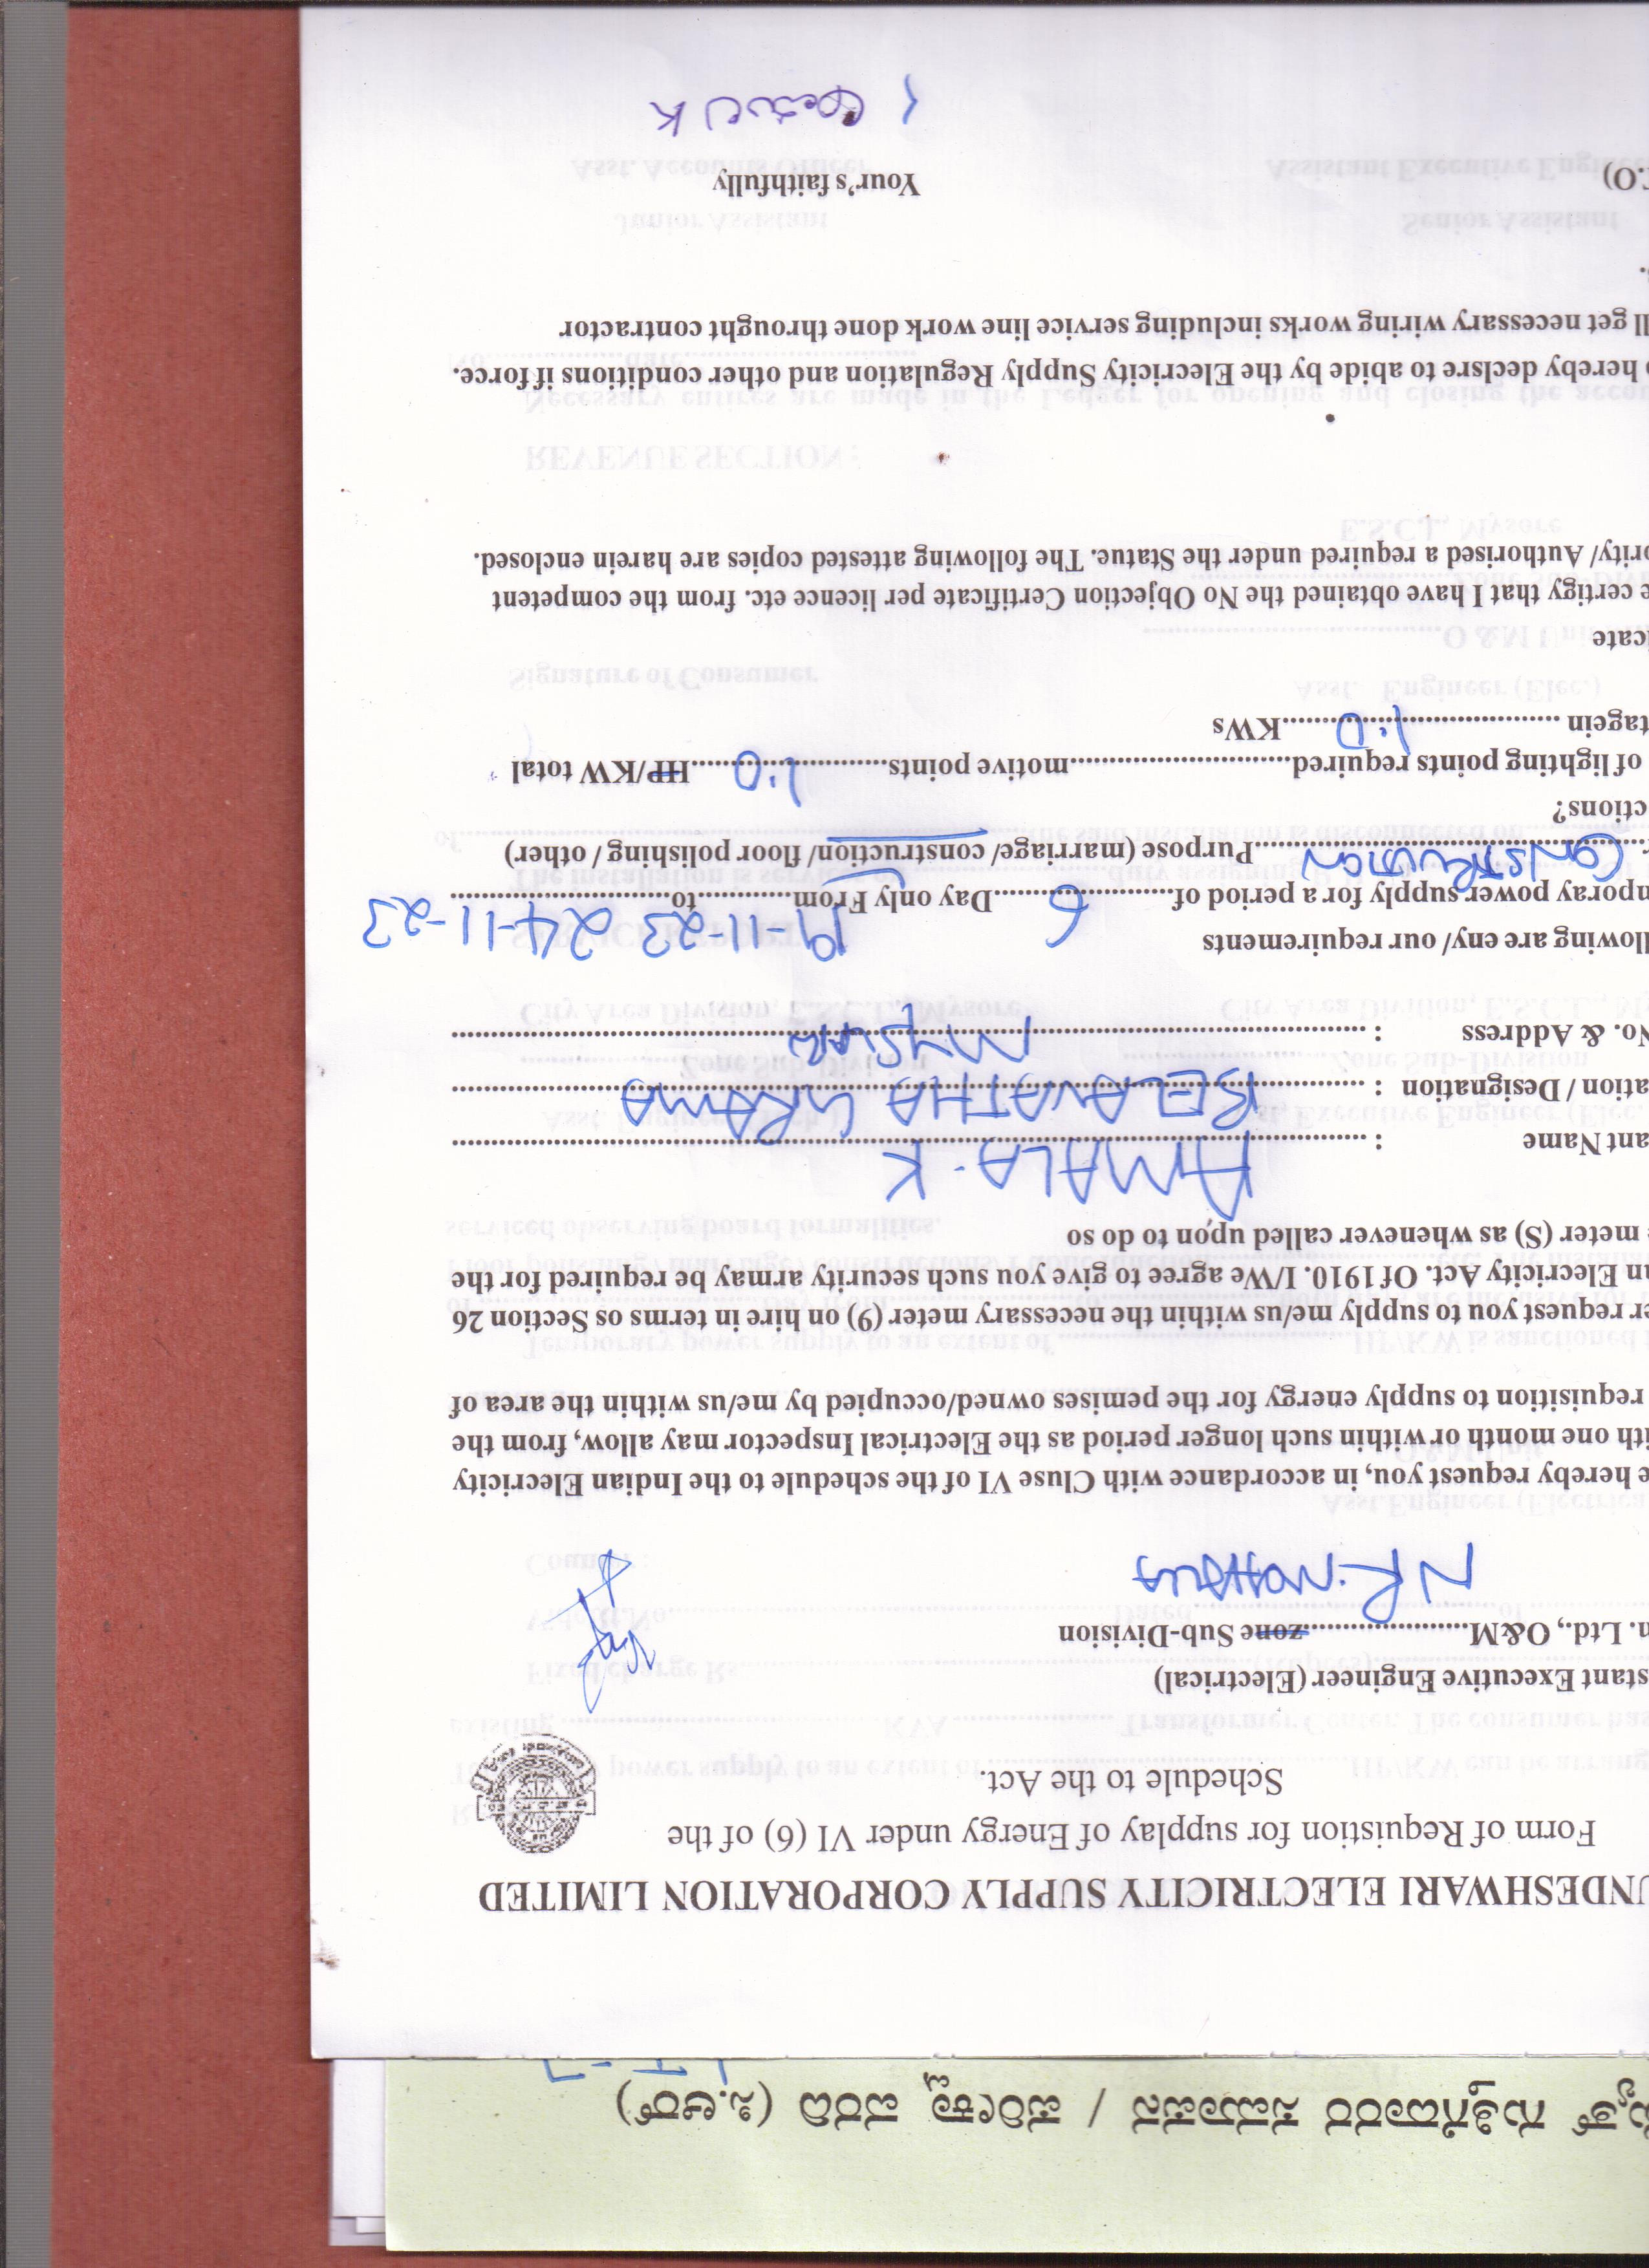 UNDESHWARI ELECTRICITY SUPPLY CORPORATION LIMITED
Form of Requistion for supplay of Energy under VI (6) of the
Schedule to the Act.
stant Executive Engineer (Electrical)
n. Ltd., O&M....................zone Sub-Division
N R. MOHALLA
e hereby request you, in accordance with Cluse VI of the schedule to the Indian Elecricity
ith one month or within such longer period as the Electrical Inspector may allow, from the
requisition to supply energy for the pemises owned/occupied by me/us within the area of
er request you to supply me/us within the necessary meter (9) on hire in terms os Section 26
an Elecricity Act. Of 1910. I/We agree to give you such security armay be required for the
e meter (S) as whenever called upon to do so
ant Name : AMALA. K
ation / Designation : BELAVATHA GRAMA
No. & Address : MYSURU
llowing are eny/ our requirements
mporay power supply for a period of 6 Day only From 19-11-23 to 24-11-23
CONSTRUCTION Purpose (marriage/ construction/ floor polishing / other)
ctions?
of lighting points required..............................motive points 1.0 HP/KW total
tagein 1.0 KWs
icate
e certigy that I have obtained the No Objection Certificate per licence etc. from the competent
ority/ Authorised a required under the Statue. The following attested copies are harein enclosed.
o hereby declsre to abide by the Elecricity Supply Regulation and other conditions if force.
ll get necessary wiring works including service line work done throught contractor
.O) Your's faithfully
ಗುತ್ತಿಗೆದಾರರ ಸಮಾಪನ / ಪರೀಕ್ಷಾ ವರದಿ (ಸಿ.ಆರ್)